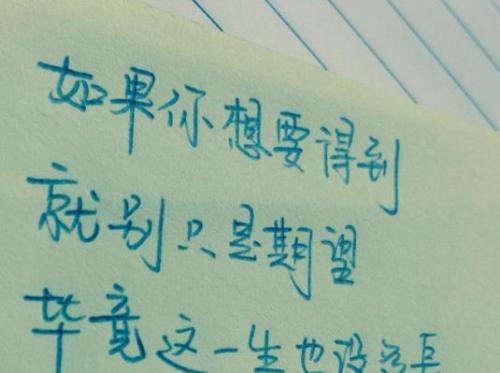 如果你想要得到
就别只是期望
毕竟这一生也没多长